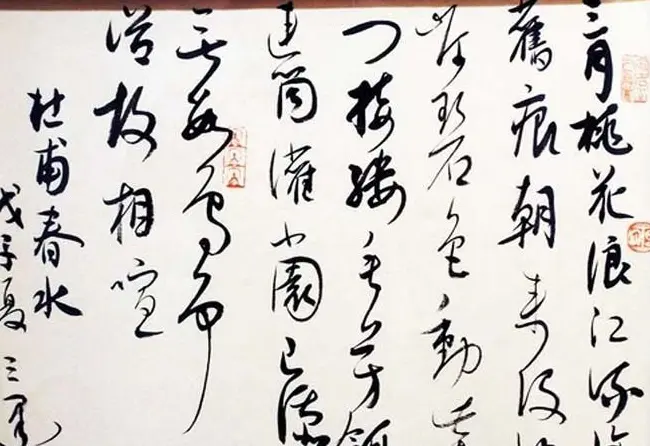 三月桃花浪江流復
舊痕朝来没
尾碧色動柴
門接縷垂芳餌
連筒灌小園已添
無數鳥爭
浴故相喧
杜甫春水
戊子夏三